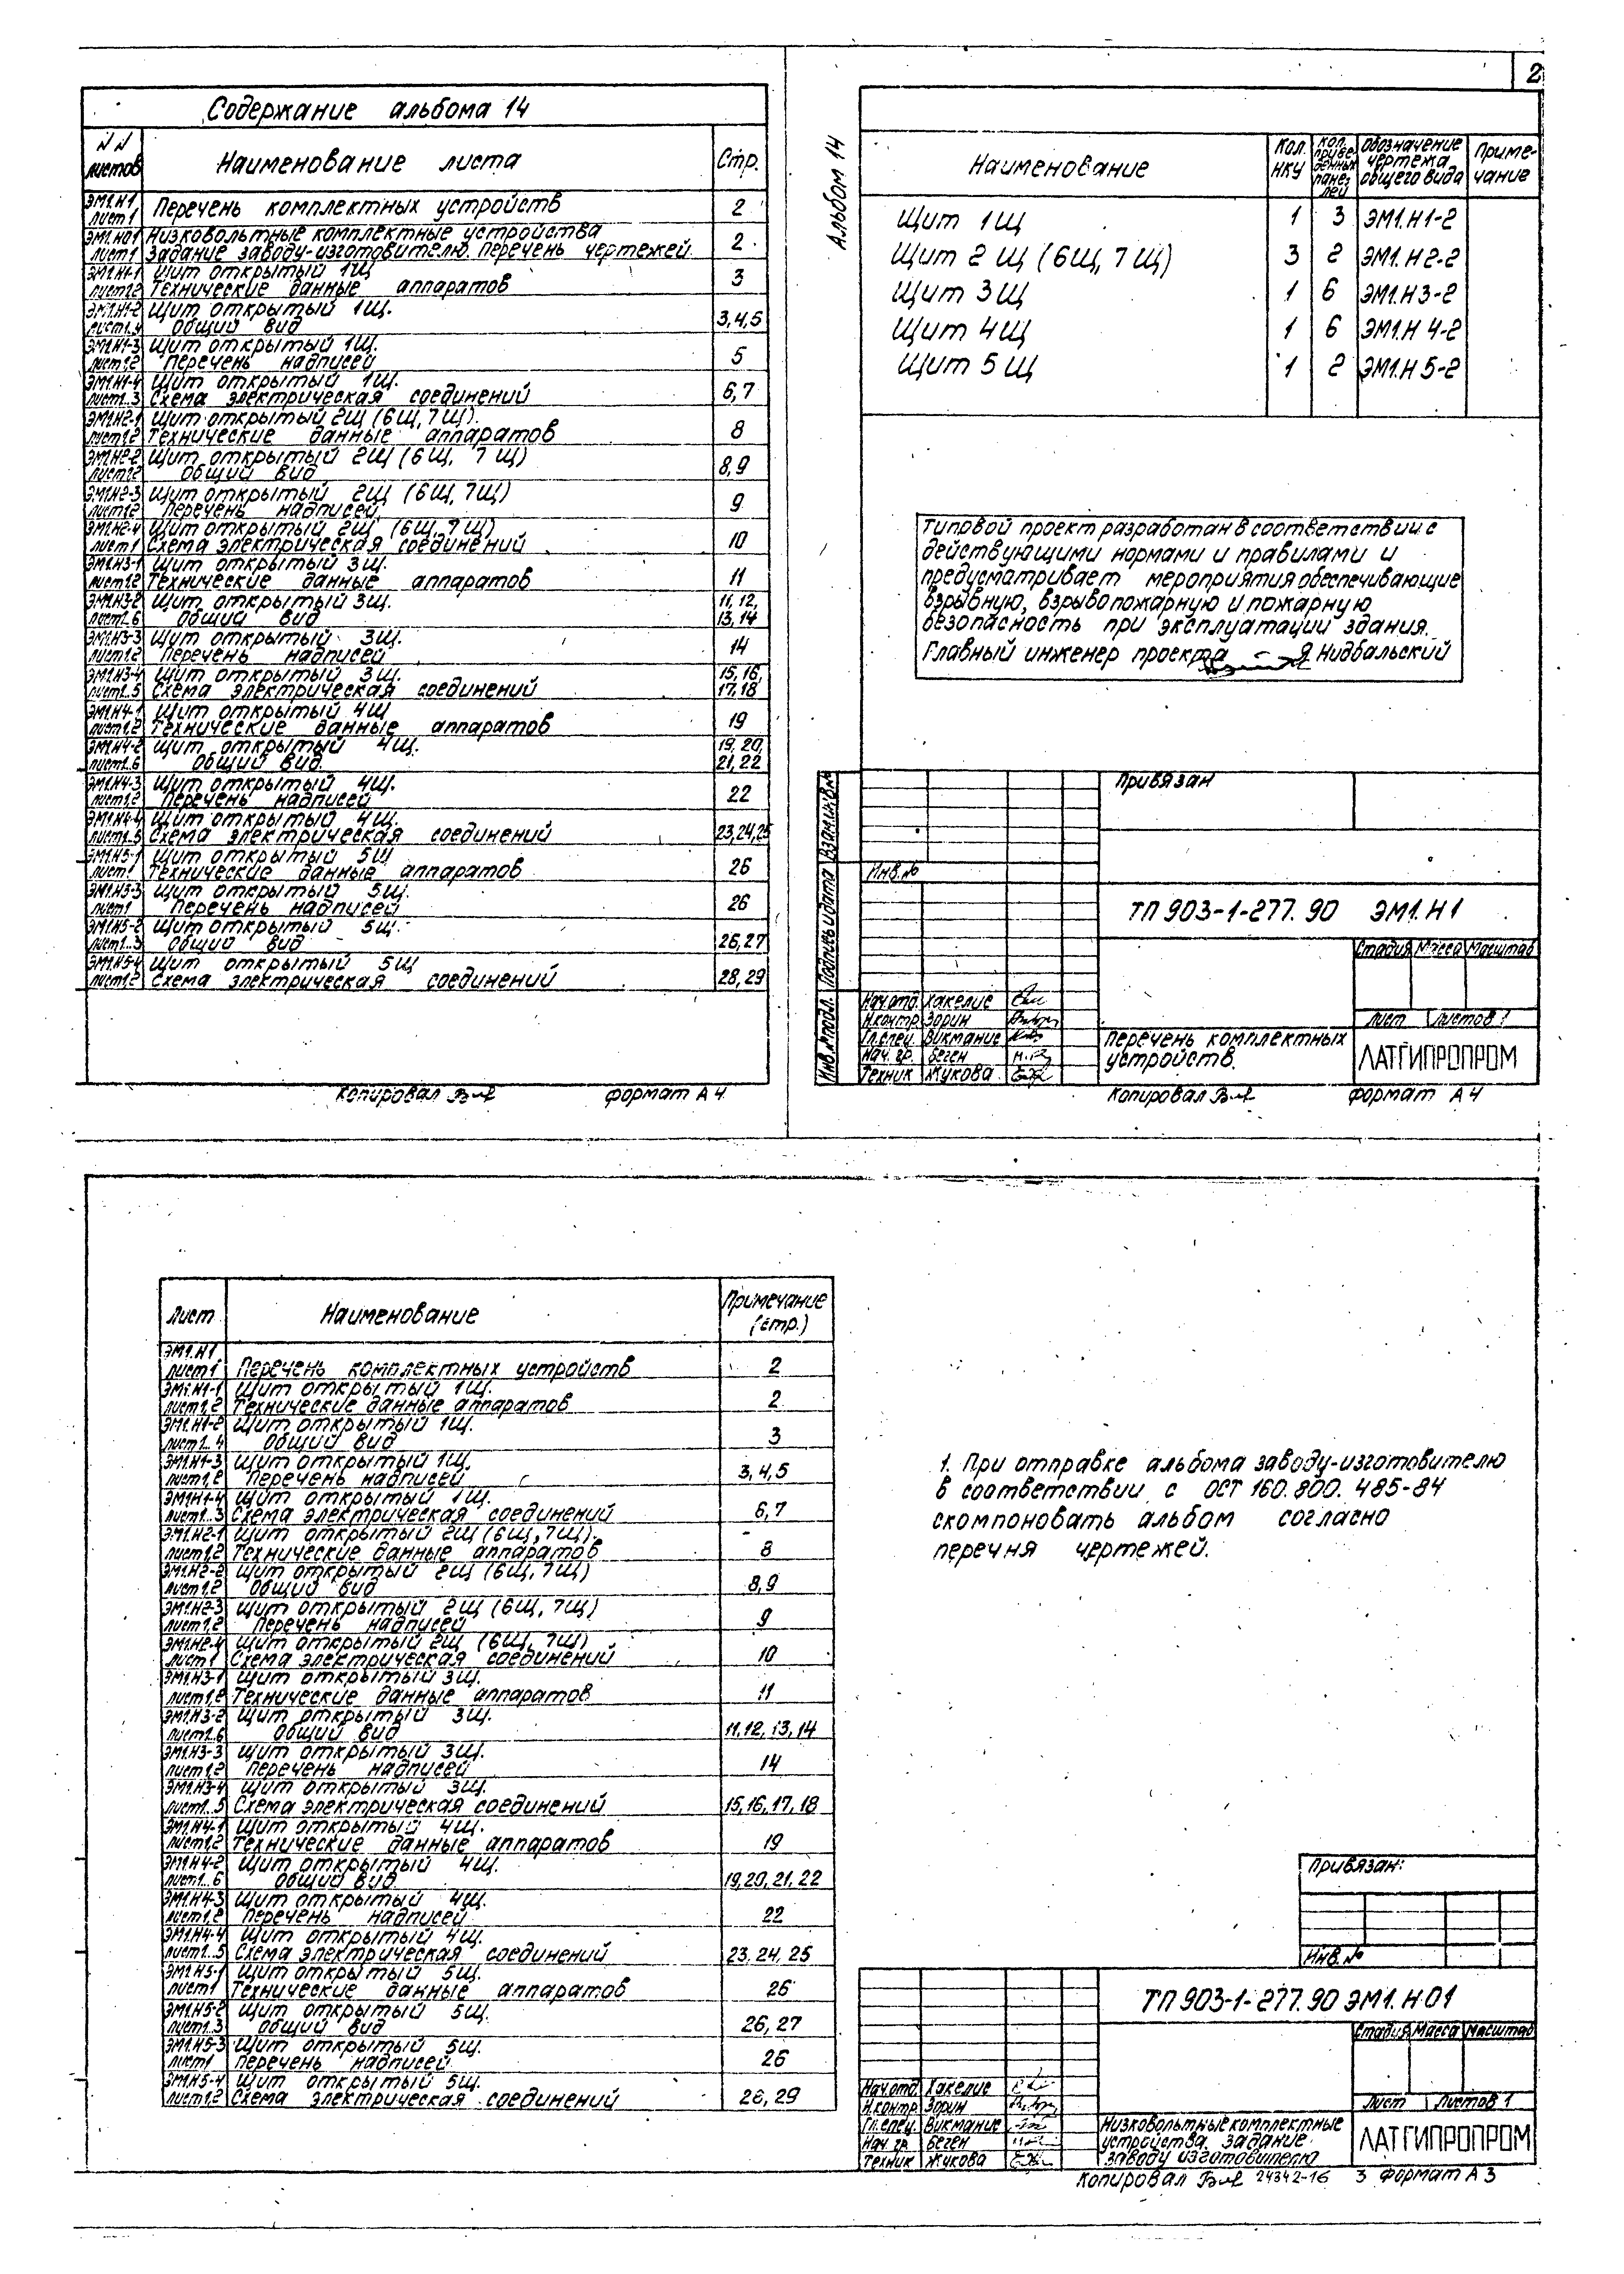 2
Содержание альбома 14
NN листов
Наименование листа
Стр.
ЭМ1.Н1 лист 1 Перечень комплектных устройств 2
ЭМ1.Н01 Низковольтные комплектные устройства
лист 1 Задание заводу-изготовителю. Перечень чертежей 2
ЭМ1.Н1-1 Щит открытый 1Щ
лист 1,2 Технические данные аппаратов 3
ЭМ1.Н1-2 Щит открытый 1Щ.
лист 1..4 Общий вид 3,4,5
ЭМ1.Н1-3 Щит открытый 1Щ.
лист 1,2 Перечень надписей 5
ЭМ1.Н1-4 Щит открытый 1Щ.
лист 1..3 Схема электрическая соединений 6,7
ЭМ1.Н2-1 Щит открытый 2Щ (6Щ, 7Щ).
лист 1,2 Технические данные аппаратов 8
ЭМ1.Н2-2 Щит открытый 2Щ (6Щ, 7Щ)
лист 1,2 Общий вид 8,9
ЭМ1.Н2-3 Щит открытый 2Щ (6Щ, 7Щ)
лист 1,2 Перечень надписей 9
ЭМ1.Н2-4 Щит открытый 2Щ (6Щ, 7Щ)
лист 1 Схема электрическая соединений 10
ЭМ1.Н3-1 Щит открытый 3Щ.
лист 1,2 Технические данные аппаратов 11
ЭМ1.Н3-2 Щит открытый 3Щ. 11,12,
лист 1..6 Общий вид 13,14
ЭМ1.Н3-3 Щит открытый 3Щ.
лист 1,2 Перечень надписей 14
ЭМ1.Н3-4 Щит открытый 3Щ. 15,16,
лист 1..5 Схема электрическая соединений 17,18
ЭМ1.Н4-1 Щит открытый 4Щ
лист 1,2 Технические данные аппаратов 19
ЭМ1.Н4-2 Щит открытый 4Щ. 19,20,
лист 1..6 Общий вид 21,22
ЭМ1.Н4-3 Щит открытый 4Щ.
лист 1,2 Перечень надписей 22
ЭМ1.Н4-4 Щит открытый 4Щ.
лист 1..5 Схема электрическая соединений 23,24,25
ЭМ1.Н5-1 Щит открытый 5Щ
лист 1 Технические данные аппаратов 26
ЭМ1.Н5-3 Щит открытый 5Щ.
лист 1 Перечень надписей 26
ЭМ1.Н5-2 Щит открытый 5Щ.
лист 1..3 Общий вид 26,27
ЭМ1.Н5-4 Щит открытый 5Щ
лист 1,2 Схема электрическая соединений 28,29
Копировал Формат А4
Альбом 14
Наименование
Кол. НКУ
Кол. приведенных панелей
Обозначение чертежа общего вида
Примечание
Щит 1Щ 1 3 ЭМ1.Н1-2
Щит 2Щ (6Щ, 7Щ) 3 2 ЭМ1.Н2-2
Щит 3Щ 1 6 ЭМ1.Н3-2
Щит 4Щ 1 6 ЭМ1.Н4-2
Щит 5Щ 1 2 ЭМ1.Н5-2
Типовой проект разработан в соответствии с
действующими нормами и правилами и
предусматривает мероприятия обеспечивающие
взрывную, взрывопожарную и пожарную
безопасность при эксплуатации здания.
Главный инженер проекта Я Нидбальский
Взам.инв.№
Подпись и дата
Инв.№подл.
Привязан
Инв.№
ТП 903-1-277.90 ЭМ1.Н1
Стадия Масса Масштаб
Нач.отд. Хакелис
Н.контр Зорин
Лист Листов 1
Гл.спец. Викмание
Нач. гр. Беген
Техник Жукова
Перечень комплектных
устройств.
ЛАТГИПРОПРОМ
Копировал Формат А4
Лист
Наименование
Примечание (стр.)
ЭМ1.Н1
лист 1 Перечень комплектных устройств 2
ЭМ1.Н1-1 Щит открытый 1Щ.
лист 1,2 Технические данные аппаратов 2
ЭМ1.Н1-2 Щит открытый 1Щ.
лист 1..4 Общий вид 3
ЭМ1.Н1-3 Щит открытый 1Щ.
лист 1,2 Перечень надписей 3,4,5
ЭМ1.Н1-4 Щит открытый 1Щ.
лист 1..3 Схема электрическая соединений 6,7
ЭМ1.Н2-1 Щит открытый 2Щ (6Щ, 7Щ).
лист 1,2 Технические данные аппаратов 8
ЭМ1.Н2-2 Щит открытый 2Щ (6Щ, 7Щ)
лист 1,2 Общий вид 8,9
ЭМ1.Н2-3 Щит открытый 2Щ (6Щ, 7Щ)
лист 1,2 Перечень надписей 9
ЭМ1.Н2-4 Щит открытый 2Щ (6Щ, 7Щ)
лист 1 Схема электрическая соединений 10
ЭМ1.Н3-1 Щит открытый 3Щ.
лист 1,2 Технические данные аппаратов 11
ЭМ1.Н3-2 Щит открытый 3Щ.
лист 1..6 Общий вид 11,12,13,14
ЭМ1.Н3-3 Щит открытый 3Щ.
лист 1,2 Перечень надписей 14
ЭМ1.Н3-4 Щит открытый 3Щ.
лист 1..5 Схема электрическая соединений 15,16,17,18
ЭМ1.Н4-1 Щит открытый 4Щ.
лист 1,2 Технические данные аппаратов 19
ЭМ1.Н4-2 Щит открытый 4Щ.
лист 1..6 Общий вид 19,20,21,22
ЭМ1.Н4-3 Щит открытый 4Щ.
лист 1,2 Перечень надписей 22
ЭМ1.Н4-4 Щит открытый 4Щ.
лист 1..5 Схема электрическая соединений 23,24,25
ЭМ1.Н5-1 Щит открытый 5Щ.
лист 1 Технические данные аппаратов 26
ЭМ1.Н5-2 Щит открытый 5Щ.
лист 1..3 Общий вид 26,27
ЭМ1.Н5-3 Щит открытый 5Щ.
лист 1 Перечень надписей 26
ЭМ1.Н5-4 Щит открытый 5Щ.
лист 1,2 Схема электрическая соединений 28,29
1. При отправке альбома заводу-изготовителю
в соответствии с ОСТ 160.800.485-84
скомпоновать альбом согласно
перечня чертежей.
Привязан:
Инв.№
ТП 903-1-277.90 ЭМ1.Н01
Стадия Масса Масштаб
Нач.отд. Хакелис
Н.контр. Зорин
Лист Листов 1
Гл.спец. Викмание
Нач. гр. Беген
Техник Жукова
Низковольтные комплектные
устройства. Задание
заводу изготовителю
ЛАТГИПРОПРОМ
Копировал 24342-16 3 Формат А3